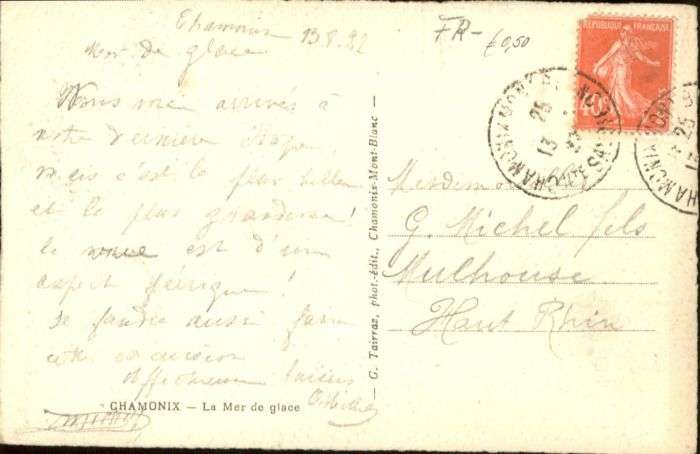 Chamonix 13 8. 22
Mer de glace
Nous voici arrivés à
notre dernière étape
mais c'est la plus belle
et la plus grandiose!
la vue est d'un
aspect féerique!
Il faudra aussi faire
cette excursion
baisers
CHAMONIX – La Mer de glace
G. Tairraz, phot.-édit., Chamonix-Mont-Blanc –
FR-
€ 0,50
REPUBLIQUE FRANÇAISE
CHAMONIX
25
13
Mesdemoiselles
G. Michel fils
Mulhouse
Haut Rhin